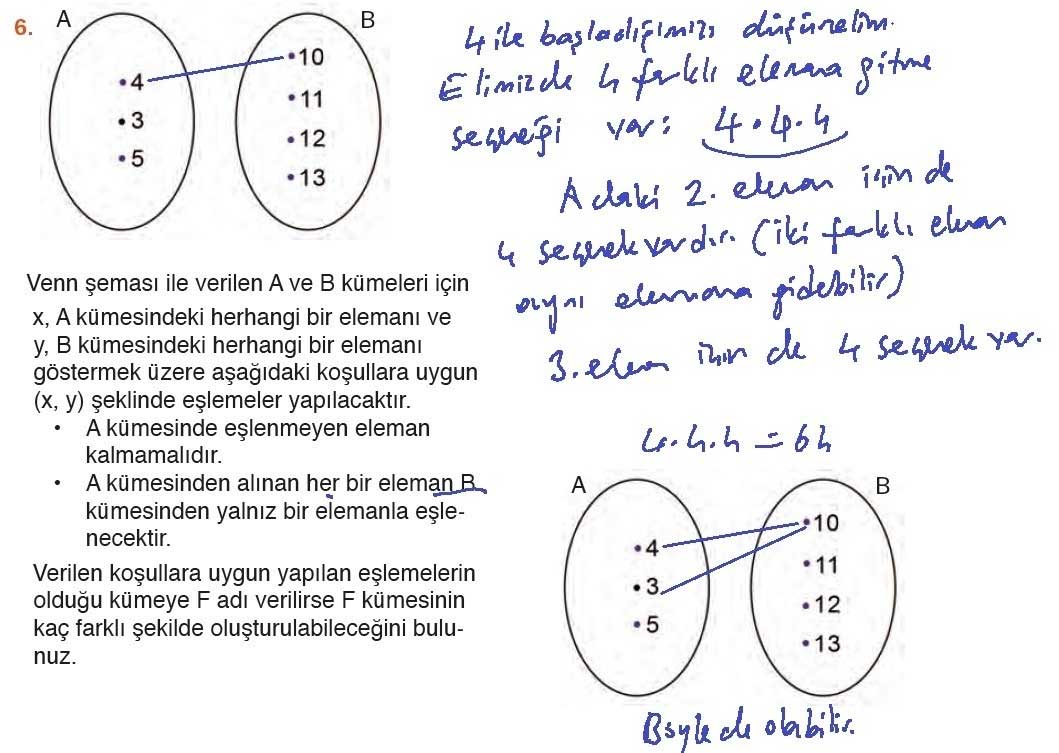 6.
A
B
4
3
5
10
11
12
13
4 ile başladığımızı düşünelim.
Elimizde 4 farklı elemana gitme
seçeneği var: 4.4.4
A daki 2. eleman için de
4 seçenek vardır. (iki farklı eleman
aynı elemana gidebilir)
3. eleman için de 4 seçenek var.
4.4.4 = 64
Venn şeması ile verilen A ve B kümeleri için
x, A kümesindeki herhangi bir elemanı ve
y, B kümesindeki herhangi bir elemanı
göstermek üzere aşağıdaki koşullara uygun
(x, y) şeklinde eşlemeler yapılacaktır.
• A kümesinde eşlenmeyen eleman
kalmamalıdır.
• A kümesinden alınan her bir eleman B
kümesinden yalnız bir elemanla eşle-
necektir.
Verilen koşullara uygun yapılan eşlemelerin
olduğu kümeye F adı verilirse F kümesinin
kaç farklı şekilde oluşturulabileceğini bulu-
nuz.
A
B
4
3
5
10
11
12
13
Böyle de olabilir.